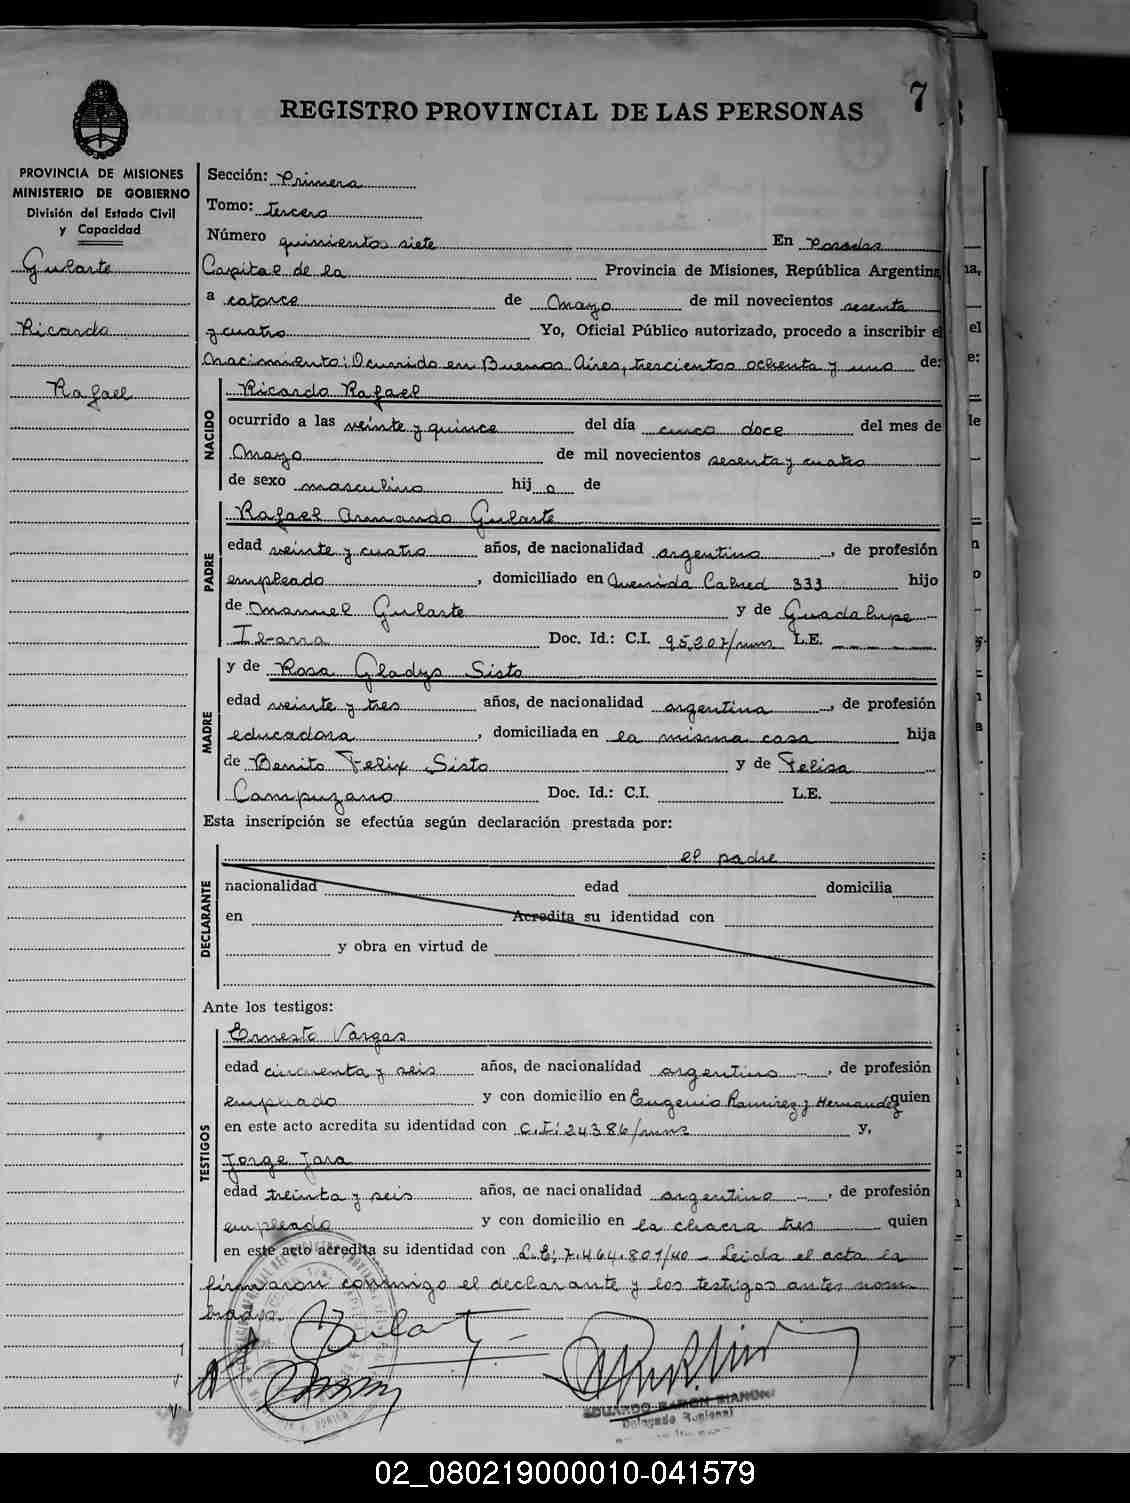 7
REGISTRO PROVINCIAL DE LAS PERSONAS
PROVINCIA DE MISIONES
MINISTERIO DE GOBIERNO
División del Estado Civil
y Capacidad
Gularte
Ricardo
Rafael
Sección: Primera
Tomo: tercero
Número quinientos siete En Posadas
Capital de la Provincia de Misiones, República Argentina
a catorce de Mayo de mil novecientos sesenta
y cuatro Yo, Oficial Público autorizado, procedo a inscribir el
Nacimiento; Ocurrido en Buenos Aires, trescientos ochenta y uno de:
NACIDO
Ricardo Rafael
ocurrido a las veinte y quince del día cinco doce del mes de
Mayo de mil novecientos sesenta y cuatro
de sexo masculino hij o de
PADRE
Rafael Armando Gularte
edad veinte y cuatro años, de nacionalidad argentino, de profesión
empleado, domiciliado en Avenida Cabred 333 hijo
de Manuel Gularte y de Guadalupe
Doc. Id.: C.I. 95.207/mns L.E.
MADRE
y de Rosa Gladys Sisto
edad veinte y tres años, de nacionalidad argentina, de profesión
educadora, domiciliada en la misma casa hija
de Benito Felix Sisto y de Felisa
Campuzano Doc. Id.: C.I. L.E.
Esta inscripción se efectúa según declaración prestada por:
DECLARANTE
el padre
nacionalidad edad domicilia
en Acredita su identidad con
y obra en virtud de
Ante los testigos:
TESTIGOS
Ernesto Vargas
edad cincuenta y seis años, de nacionalidad argentino, de profesión
empleado y con domicilio en Eugenio Ramirez y Hernandez quien
en este acto acredita su identidad con C.I: 24386/mns y,
Jorge Jara
edad treinta y seis años, de nacionalidad argentino, de profesión
empleado y con domicilio en la chacra tres quien
en este acto acredita su identidad con L.E; 7.464.801/40 - Leida el acta la
firmaron conmigo el declarante y los testigos antes nom
brados.
Gularte
EDUARDO RAMON
Delegado Regional
02_080219000010-041579